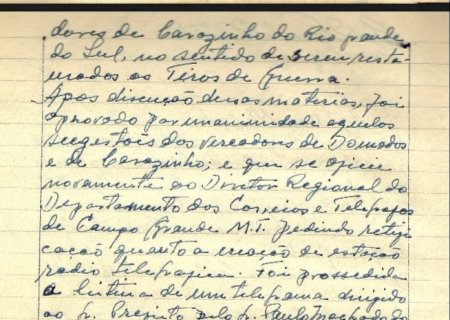 dores de Carazinho do Rio grande
do Sul, no sentido de serem resta-
urados os Tiros de Guerra.
Apos discução dessas materias, foi
aprovado por unanimidade aquelas
sugestões dos vereadores de Dourados
e de Carazinho; e que se oficie
novamente ao Diretor Regional do
Departamento dos Correios e Telegrafos
de Campo Grande M.T. pedindo retifi
cação quanto a creação de estação
radio telegrafica. Foi prossedida
a leitura de um telegrama dirigido
ao sr. Prefeito pelo sr. Paulo Machado do